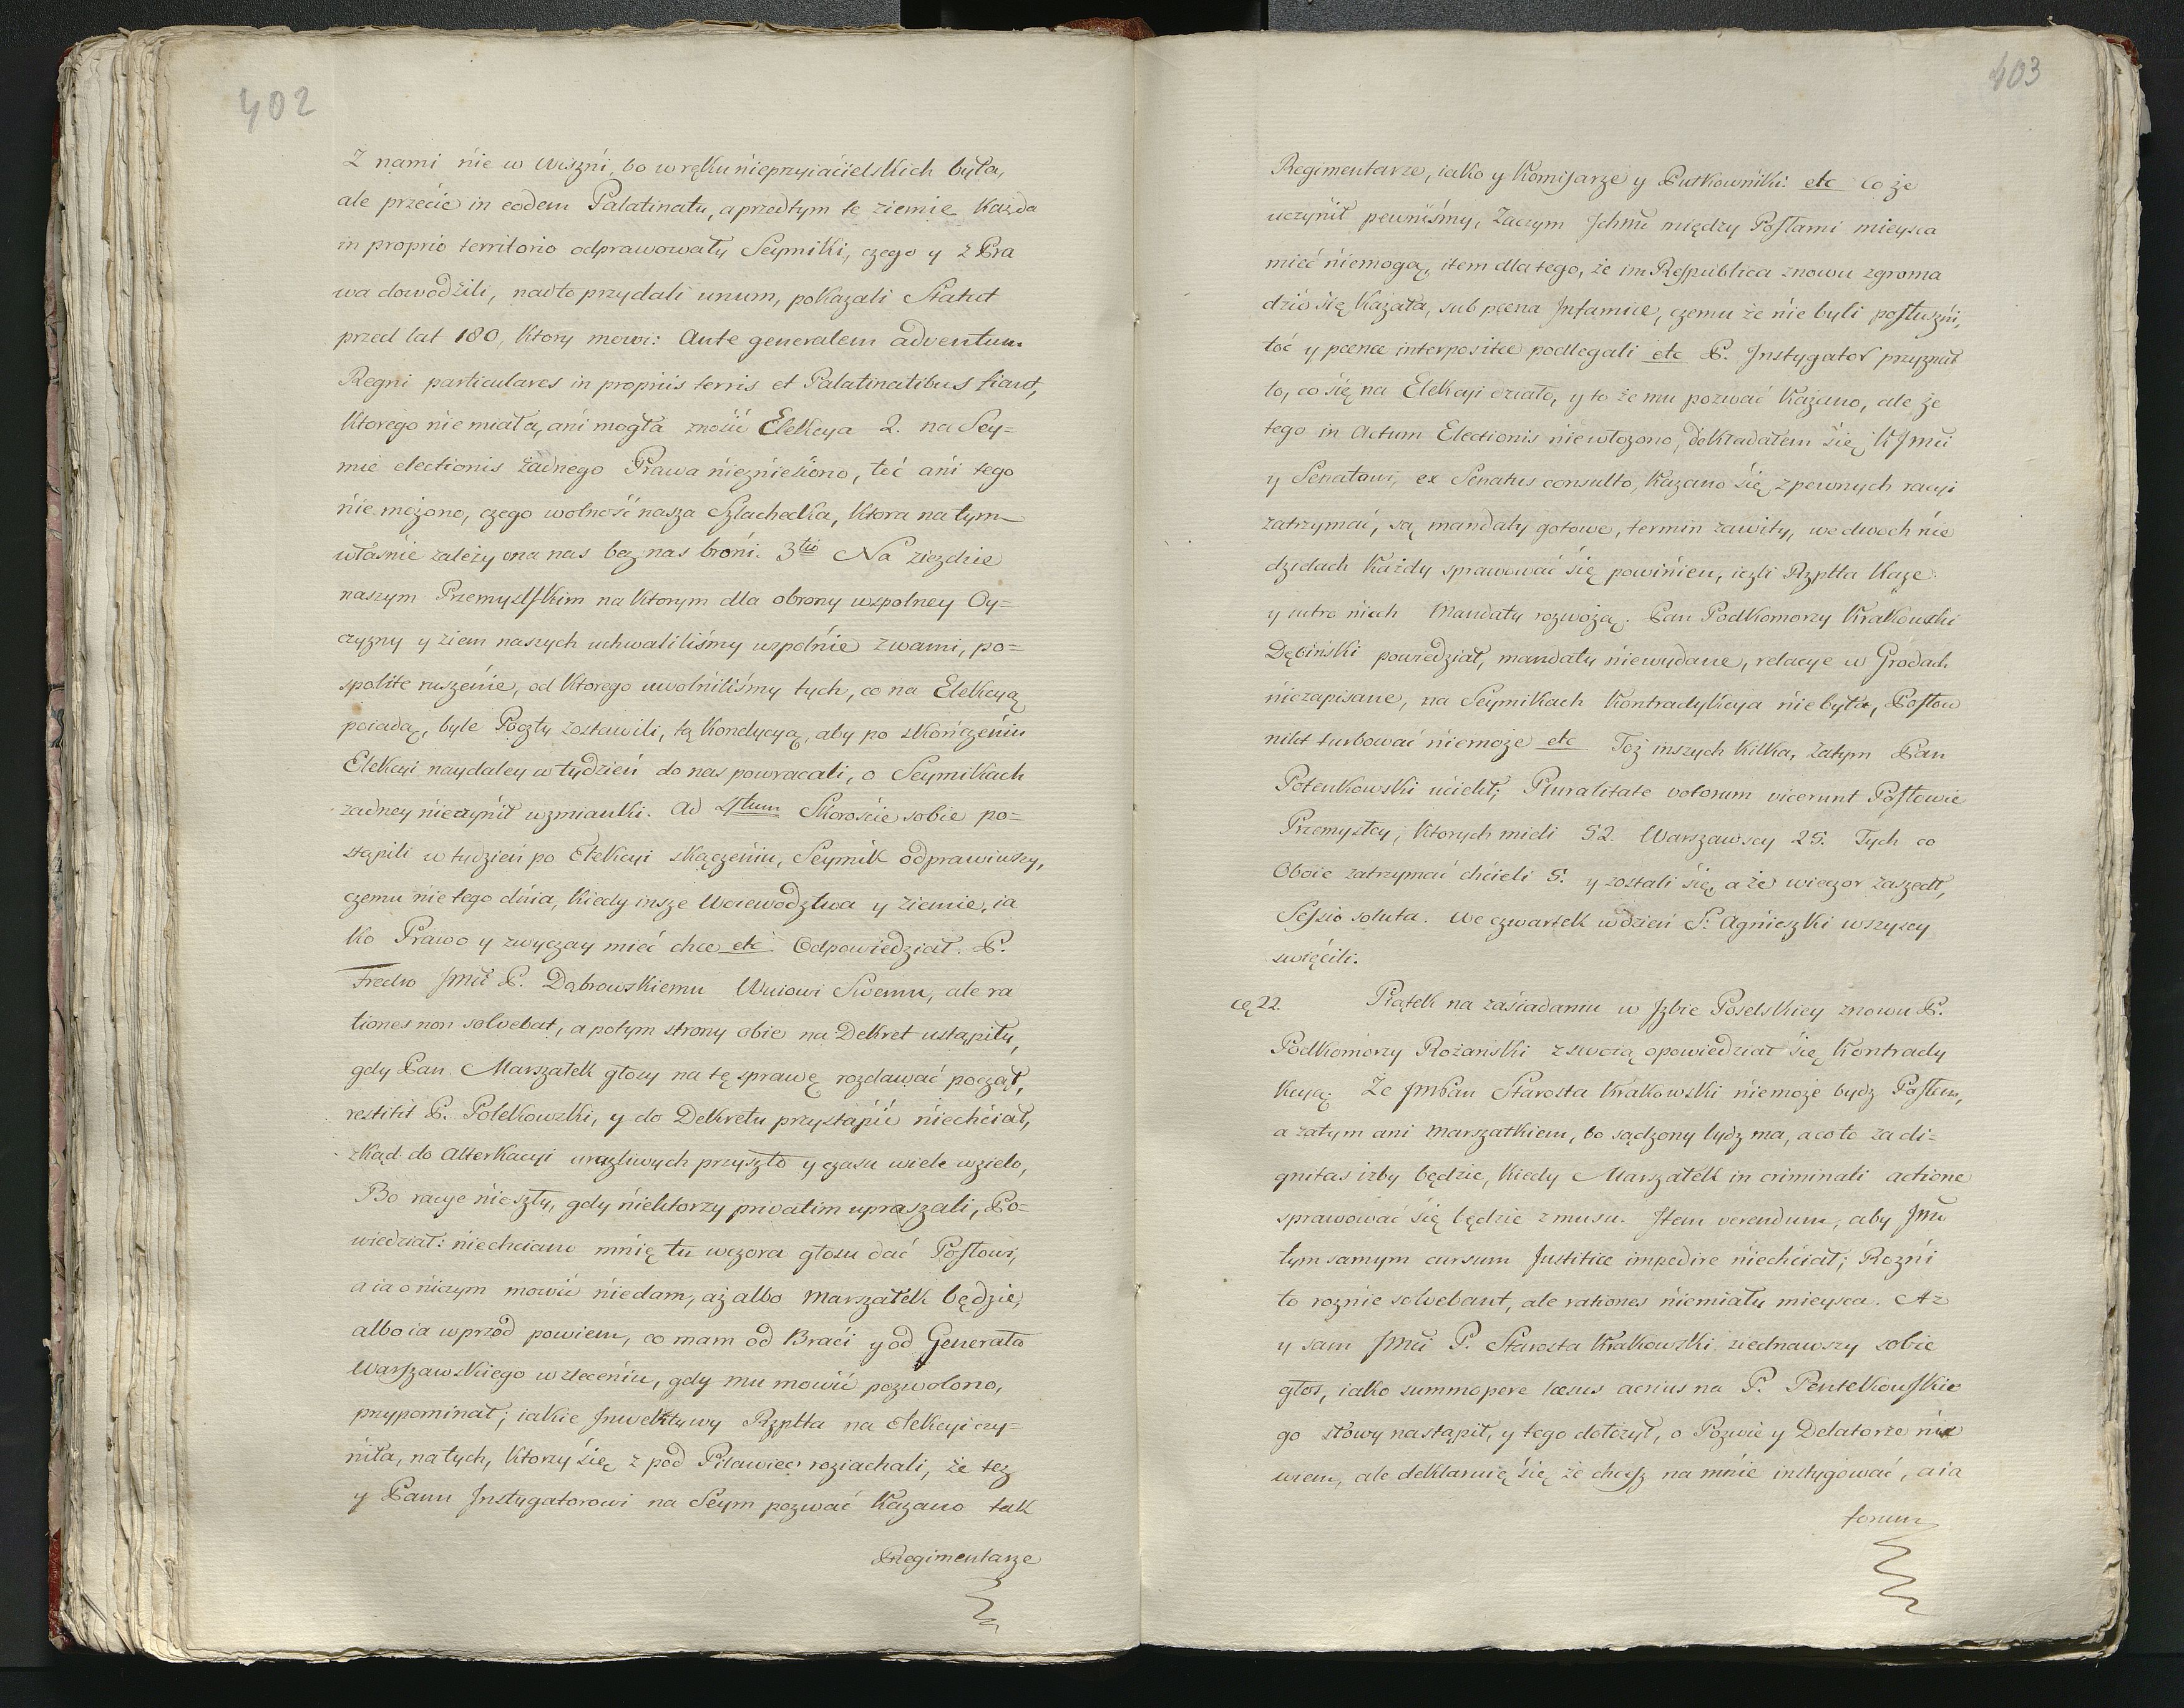 402
Z nami nie w Wiszni, bo w ręku nieprzyiacielskich była,
ale przecie in eodem Palatinatu, a przedtym te ziemie każda
in proprio territorio odprawowały Seymiki, czego y z Pra
wa dowodzili, nadto przydali unum, pokazali Statut
przed lat 180, ktory mowi: Ante generalem adventum
Regni particulares in propriis terris et Palatinatibus fiant,
ktorego nie miała, ani mogła znosić Elekcya 2. na Sey=
mie electionis żadnego Prawa nie zniesiono, toć ani tego
nie możono, czego wolność nasza Szlachecka, ktora na tym
własnie zależy ona nas bez nas broni. 3tio Na ziezdzie
naszym Przemyslskim na ktorym dla obrony wspolney Oy=
czyzny y ziem naszych uchwaliliśmy wspolnie z wami, po=
spolite ruszenie, od ktorego uwolniliśmy tych, co na Elekcyą
poiadą, byle Poczty zostawili, tą kondycyą, aby po skończeniu
Elekcyi naydaley w tydzień do nas powracali, o Seymikach
żadney nieczynił wzmianki. Ad 4tum Skoroście sobie po=
stąpili w tydzień po Elekcyi skączeniu, Seymik odprawiwszy,
czemu nie tego dnia, kiedy insze Woiewodztwa y ziemie, ia
ko Prawo y zwyczay mieć chce etc. Odpowiedział. P.
Fredro Jmći P. Dąbrowskiemu Wuiowi Swemu, ale ra
tiones non solvebat, a potym strony obie na Dekret ustąpiły,
gdy Pan Marszałek głosy na tę sprawę rozdawać począł,
restitit P. Potelkowski, y do Dekretu przystąpić niechciał,
zkąd do Alterkacyi uraźliwych przyszło y czasu wiele wzieło,
Bo racye nie szły, gdy niektorzy privatim upraszali, Po=
wiedział: niechciano mnię tu wczora głosu dać Posłowi,
a ia o niczym mowić niedam, aż albo Marszałek będzie,
albo ia wprzod powiem, co mam od Braći y od Generała
Warszawskiego w zleceniu, gdy mu mowić pozwolono,
przypominał; iakie Jnwektywy Rzptta na Elekcyi czy=
niła, na tych, ktorzy się z pod Piławiec roziachali, że też
y Panu Jnstygatorowi na Seym pozwać Kazano tak
Regimentarze
403
Regimentarze, iako y Komisarze y Pułkowniki etc co że
uczynił pewniśmy, Zaczym Jchmć między Posłami mieysca
mieć niemogą, item dla tego, że im Respublica znowu zgroma
dzić się kazała, sub pœna Jnfamiæ, czemu że nie byli posłuszni,
toć y pœnæ interpositæ podlegali etc P. Jnstygator przyznał
to, co się na Elekcyi działo, y to że mu pozwać Kazano, ale że
tego in Actum Electionis niewłożono, dokładałem się K Jmći
y Senatowi, ex Senatus consulto, Kazano się z pewnych racyi
zatrzymać, są mandaty gotowe, termin zawity, we dwoch nie
dzielach każdy sprawować się powinien, ieżli Rzptta każe
y jutro niech Mandaty rozwożą. Pan Podkomorzy Krakowski
Dębiński powiedział, mandaty niewydane, relacye w Grodach
niezapisane, na Seymikach kontradykcya nie była, Posłow
nikt turbować niemoże etc Toż inszych kilka, zatym Pan
Potenkowski ucichł; Pluralitate votorum vicerunt Posłowie
Przemyslcy, ktorych mieli 52. Warszawscy 25. Tych co
Oboie zatrzymać chcieli 5. y zostali się, a że wieczor zaszedł,
Sessio soluta. We czwartek w dzień S. Agnieszki wszyscy
święcili.
22. Piątek na zasiadaniu w Jzbie Poselskiey znowu P.
Podkomorzy Rożański z swoią opowiedział się kontrady
kcyą. Że JmPan Starosta Krakowski niemoże bydź Posłem,
a zatym ani Marszałkiem, bo sądzony bydź ma, a co to za di=
gnitas izby będzie, kiedy Marszałek in criminali actione
sprawować się będzie z musu. Jtem verendum, aby Jmć
tym samym cursum Justitiæ impedire niechciał; Rozni
to roznie solvebant, ale rationes niemiały mieysca. Aż
y sam Jmći P. Starosta Krakowski ziednawszy sobie
głos, iako summopere læsus acrius na P. Pentelkowskie
go słowy nastąpił, y tego dołożył, o Pozwie y Delatorze nie
wiem, ale deklaruię się że chcesz na mnie instygować, a ia
forum